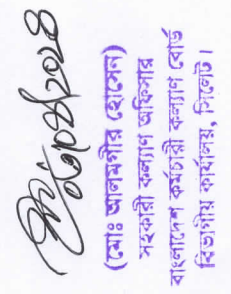 ০৮/০৮/২০২৪
(মোঃ আলমগীর হোসেন)
সহকারী কল্যাণ অফিসার
বাংলাদেশ কর্মচারী কল্যাণ বোর্ড
বিভাগীয় কার্যালয়, সিলেট।